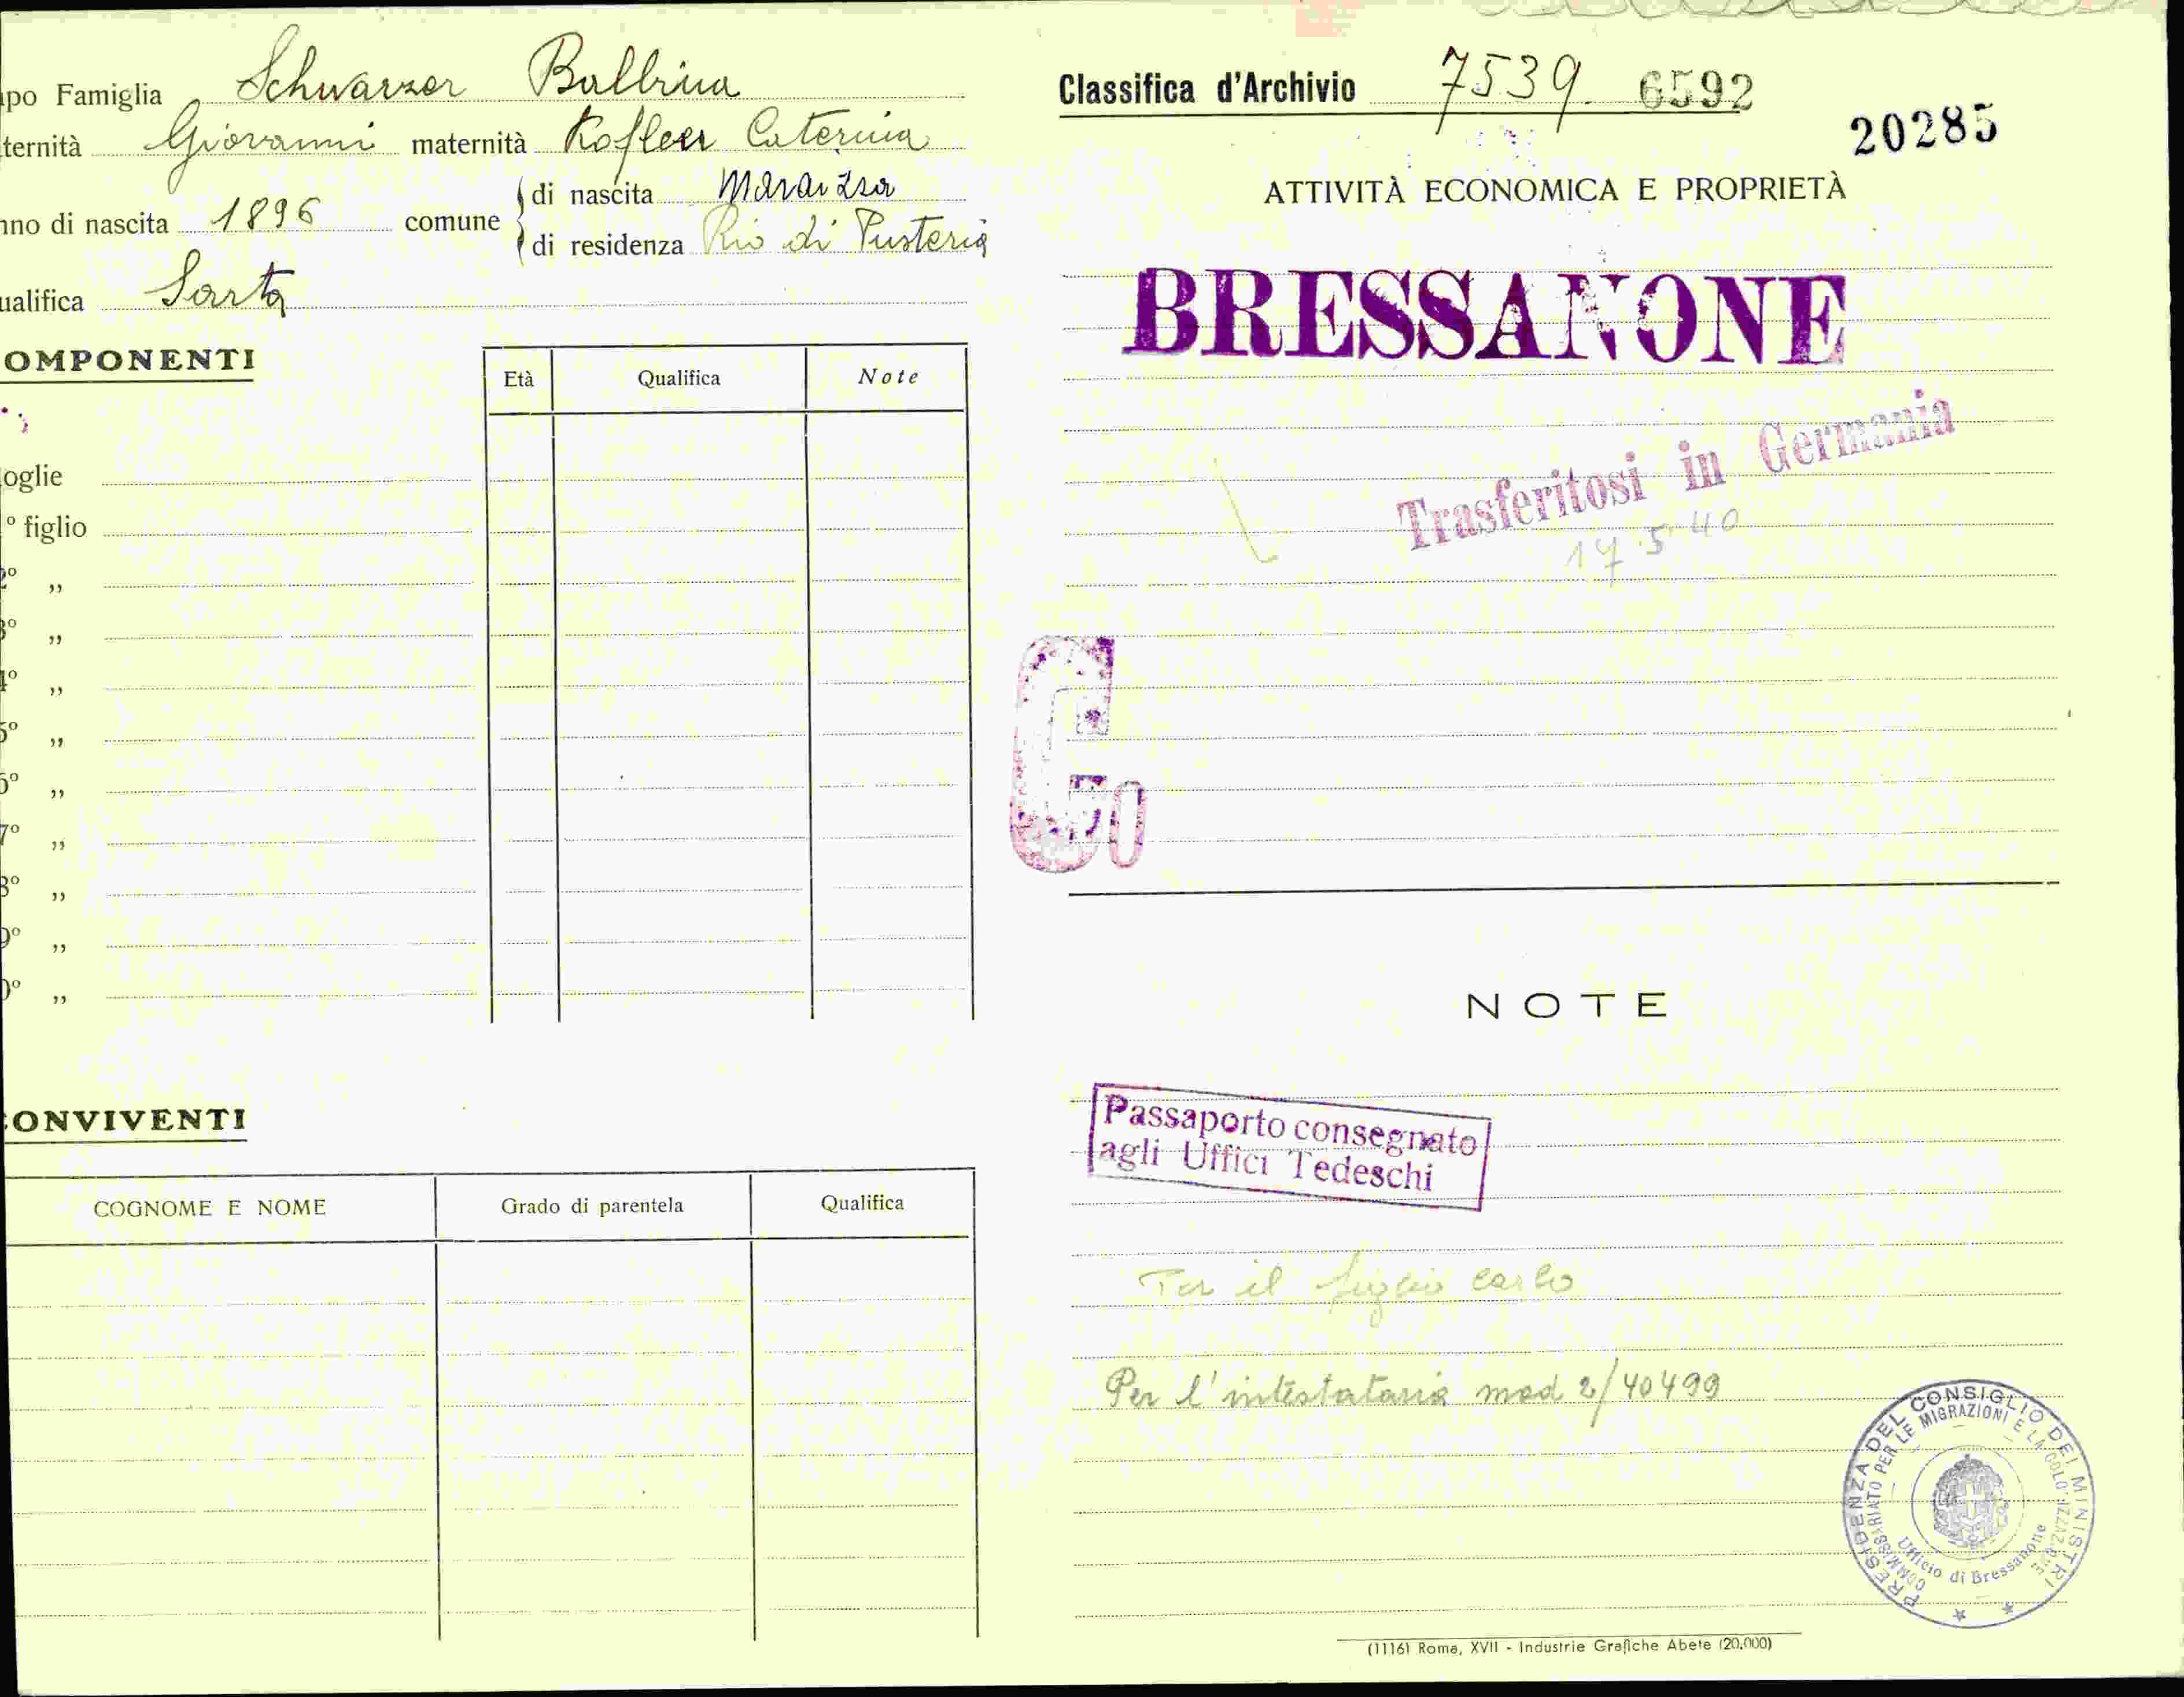 po Famiglia Schwarzer Balbina
ternità Giovanni maternità Kofler Caterina
nno di nascita 1896 comune di nascita Maranza
di residenza Rio di Pusteria
ualifica Sarta
OMPONENTI
Età Qualifica Note
oglie
º figlio
2º „
3º „
4º „
5º „
6º „
7º „
8º „
9º „
0º „
ONVIVENTI
COGNOME E NOME Grado di parentela Qualifica
Classifica d'Archivio 7539 6592
20285
ATTIVITÀ ECONOMICA E PROPRIETÀ
BRESSANONE
Trasferitosi in Germania
17.5.40
G
NOTE
Passaporto consegnato
agli Uffici Tedeschi
Per il figlio Carlo
Per l'intestataria mod 2/40499
PRESIDENZA DEL CONSIGLIO DEI MINISTRI
COMMISSARIATO PER LE MIGRAZIONI E LA COLONIZZAZIONE
Ufficio di Bressanone
(1116) Roma, XVII - Industrie Grafiche Abete (20.000)